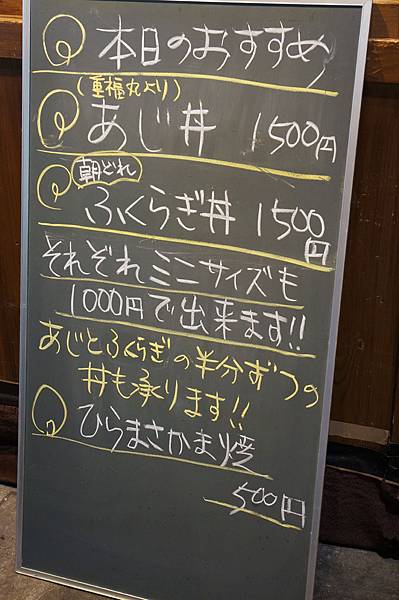 本日のおすすめ
(重福丸より)
あじ丼 1500円
朝どれ
ふくらぎ丼 1500円
それぞれミニサイズも
1000円で出来ます!!
あじとふくらぎの半分ずつの
丼も承ります!!
ひらまさかま焼
500円